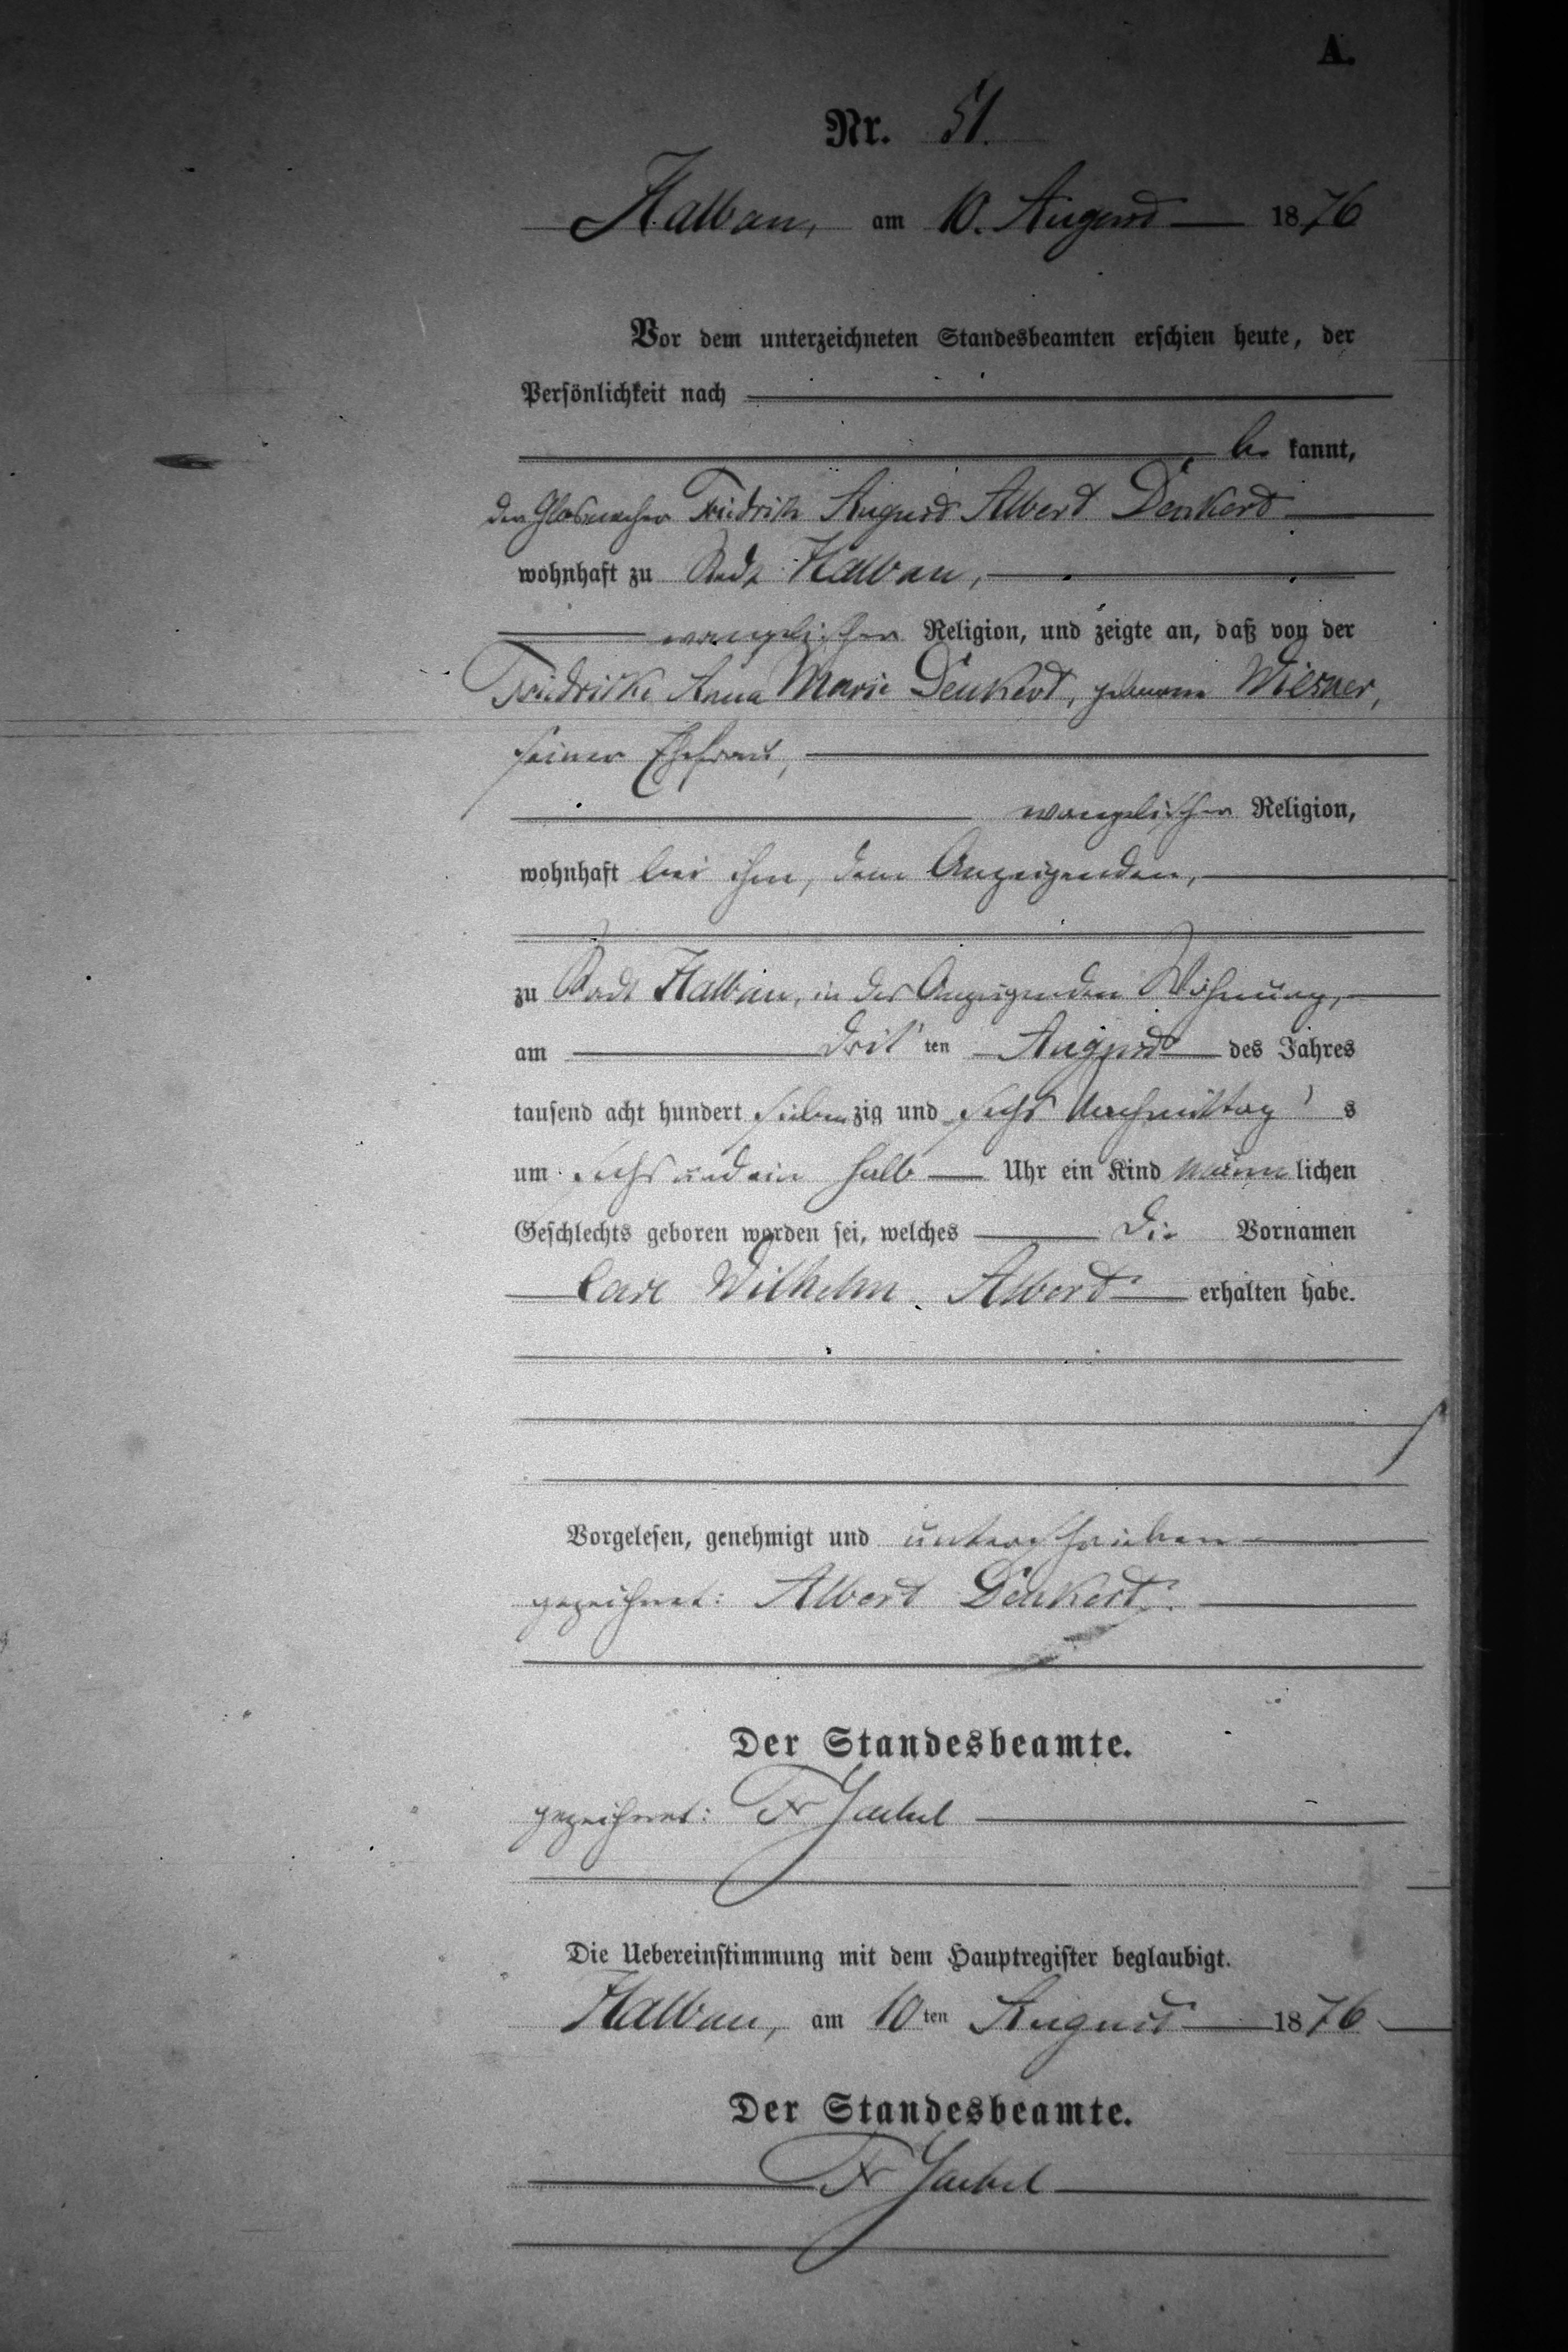 A.
Nr. 51.
Halbau, am 10. August 1876
Vor dem unterzeichneten Standesbeamten erschien heute, der
Persönlichkeit nach
be kannt,
der Glasmacher Friedrich August Albert Denkert
wohnhaft zu Stadt Halbau,
evangelischer Religion, und zeigte an, daß von der
Friedricke Anna Marie Denkert, geborene Wiesner,
seiner Ehefrau,
evangelischer Religion,
wohnhaft bei ihm, dem Anzeigenden,
zu Stadt Halbau, in des Anzeigenden Wohnung,
am drit ten August des Jahres
tausend acht hundert sieben zig und sechs Nachmittag s
um sechs und ein halb Uhr ein Kind männ lichen
Geschlechts geboren worden sei, welches die Vornamen
Carl Wilhelm Albert erhalten habe.
Vorgelesen, genehmigt und unterschrieben
gezeichnet: Albert Denkert.
Der Standesbeamte.
gezeichnet: Fr Jaekel
Die Uebereinstimmung mit dem Hauptregister beglaubigt.
Halbau, am 10 ten August 1876
Der Standesbeamte.
Fr Jaekel